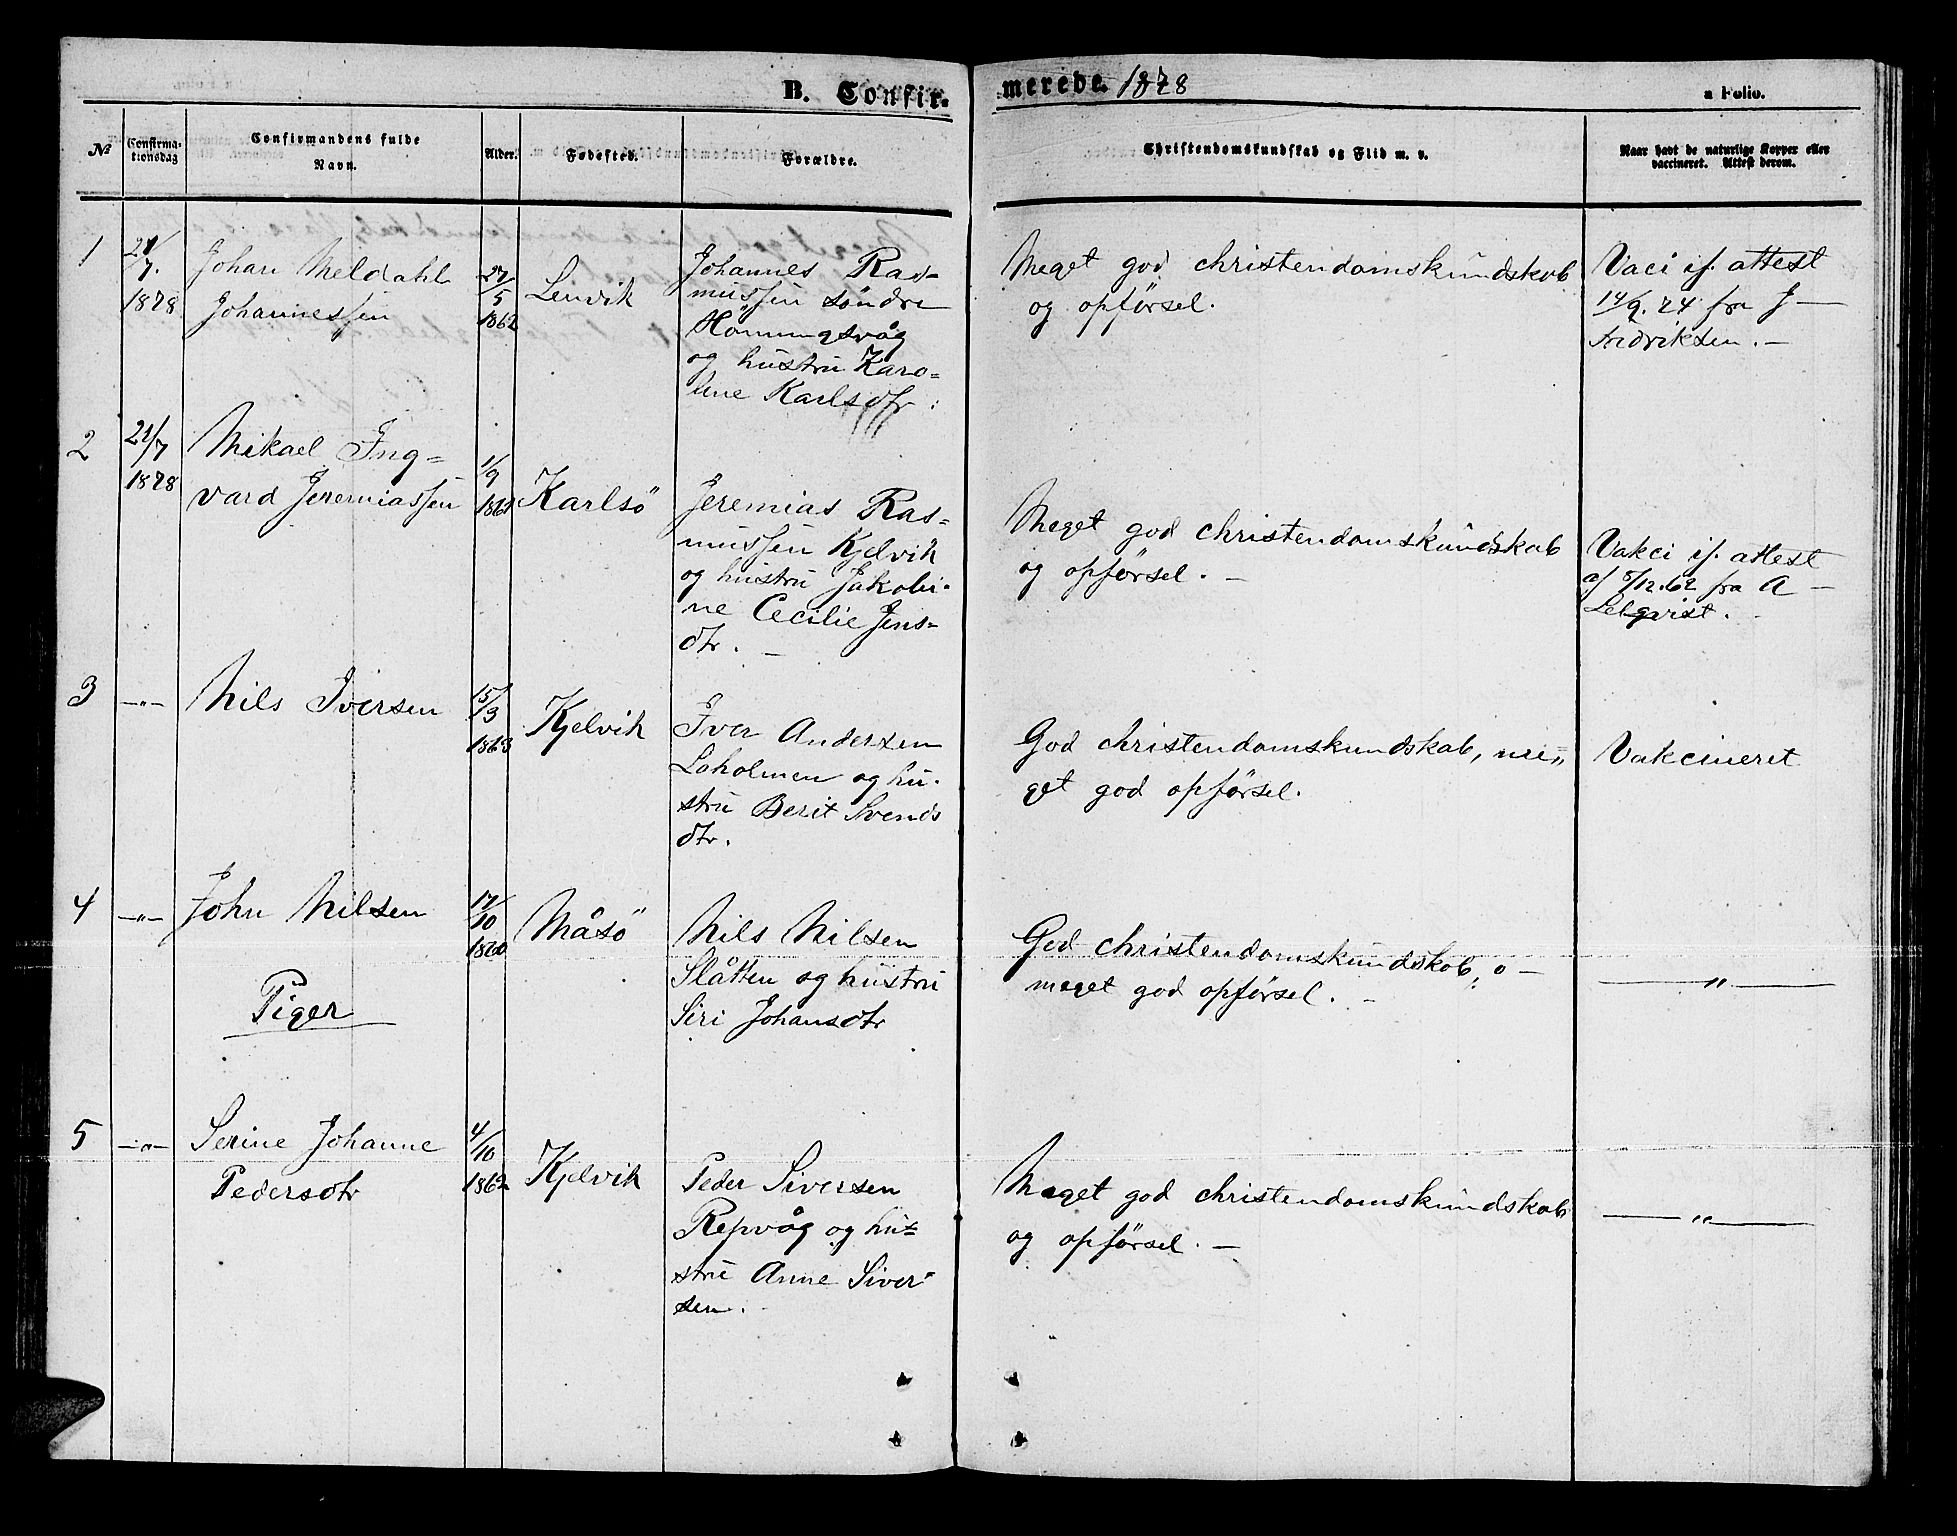 B. Confir-
merede. 1878
a Folio.
№
Confirma-
tionsdag
Confirmandens fulde
Navn.
Alder.
Fødested.
Forældre.
Christendomskundskab og Flid m. v.
Naar havt de naturlige Kopper eller
vaccineret. Attest derom.
1
21/
7.
1878
Johan Meldahl
Johannessen
27/
5
1862
Lenvik
Johannes Ras-
mussen søndre
Honningsvåg
og hustru Karo-
line Karlsdtr.
Meget god christendomskundskab
og opførsel.
Vaci if. attest
14/9. 74 fra J —
Fredriksen. —
2
21/7
1878
Mikael Ing-
vard Jeremiassen
1/
9
Karlsö
Jeremias Ras-
mussen Kjelvik
og hustru Jakobi-
ne Cecilie Jens-
dtr. —
Meget god christendomskundskab
og opførsel. —
Vakci if. attest
af 5/12. 62 fra A —
3
—〃—
Nils Iversen
15/
3
1863
Kjelvik
Iver Andersen
Loholmen og hu-
stru Berit Svends
dtr.
God christendomskundskab, me-
get god opførsel.
Vakcineret
4
—〃—
John Nilsen
17/
10
1860
Måsö
Nils Nilsen
Slåtten og hustru
Siri Johansdtr
God christendomskundskab, o —
meget god opførsel. —
—〃—
Piger
5
—〃—
Serine Johanne
Pedersdtr
4/
10
1862
Kjelvik
Peder Siversen
Repvåg og hu-
stru Anne Siver-
sen.
Meget god christendomskundskab
og opførsel. —
—〃—